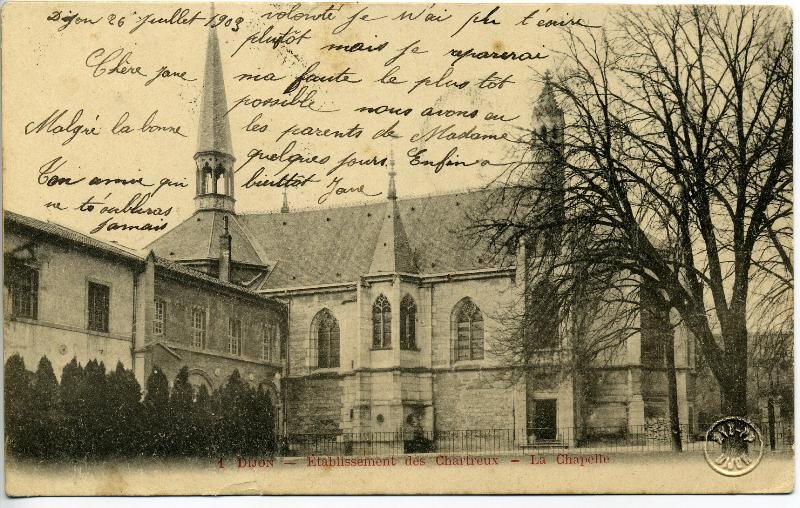 Dijon 26 juillet 1903
Chère Jane
Malgré la bonne
volonté je n'ai plu t'écrire
plutôt mais je reparerai
ma faute le plus tot
possible nous avons eu
les parents de Madame
quelques jours. Enfin a
bientôt Jane
Ton amie qui
ne t'oublieras
jamais
1 DIJON — Établissement des Chartreux — La Chapelle
DIJON